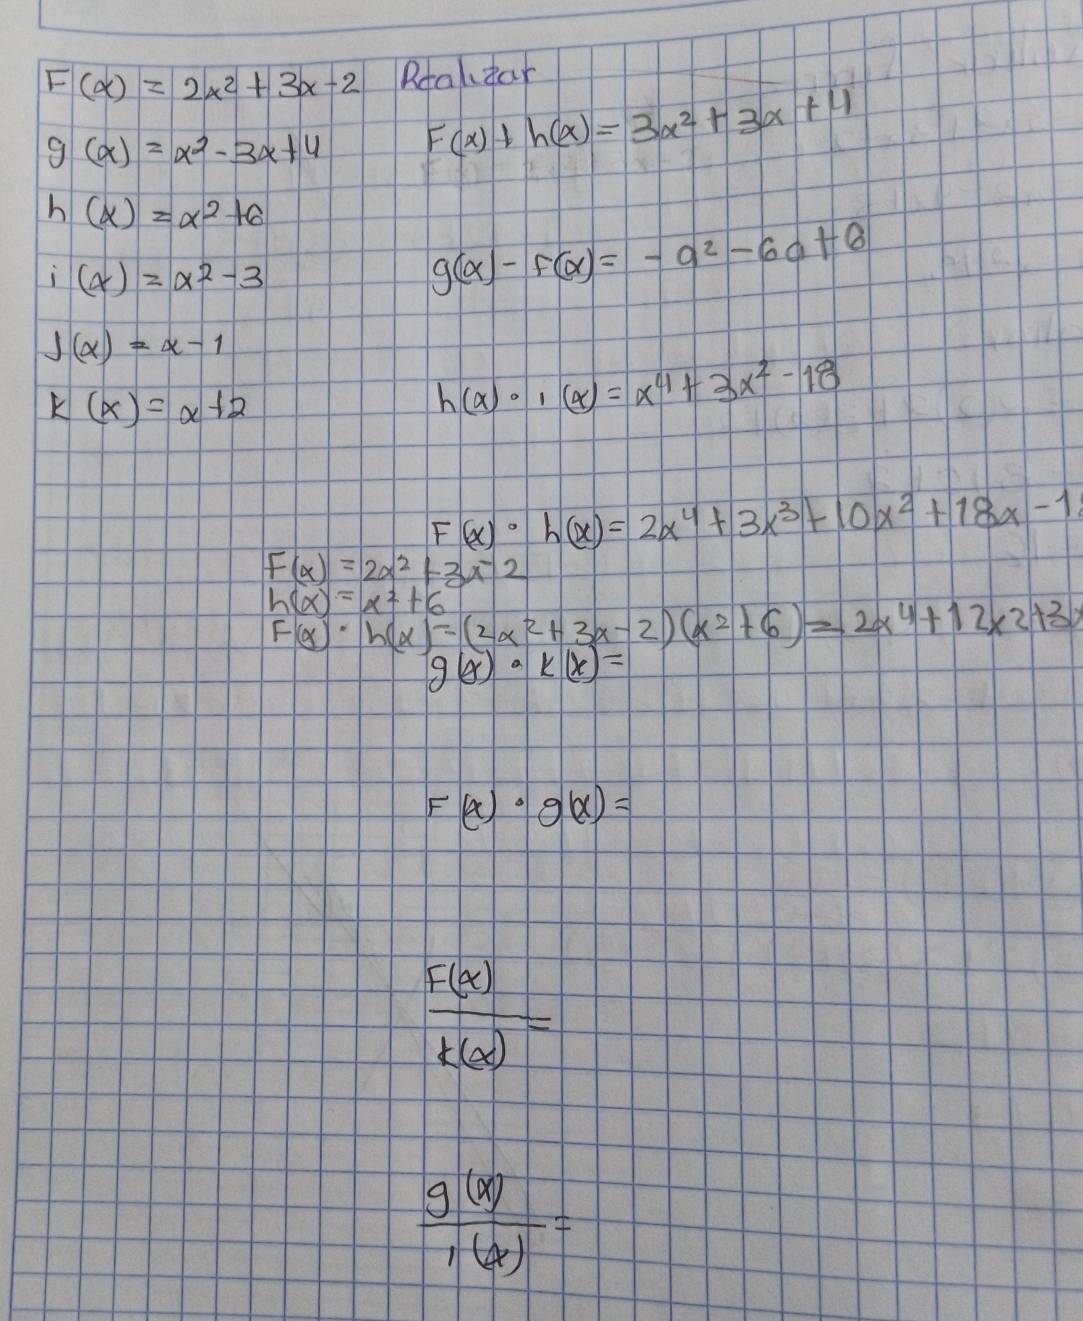 F(x) = 2x² + 3x - 2 Realizar
F(x) + h(x) = 3x² + 3x + 4
g(x) = x² - 3x + 4
h(x) = x² + 6
g(x) - F(x) = - a² - 6a + 6
i(x) = x² - 3
J(x) = x - 1
k(x) = x + 2
h(x) · i(x) = x⁴ + 3x² - 18
F(x) · h(x) = 2x⁴ + 3x³ + 10x² + 18x - 1
F(x) = 2x² + 3x - 2
h(x) = x² + 6
F(x) · h(x) = (2x² + 3x - 2)(x² + 6) = 2x⁴ + 12x2 + 3x
g(x) · k(x) =
F(x) · g(x) =
F(x)
=
k(x)
g(x)
=
i(x)